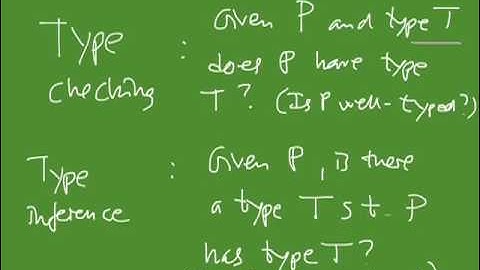 Type : Given P and type T
checking does P have type
T? (Is P well-typed?)
Type : Given P, is there
inference a type T s.t. P
has type T?
)